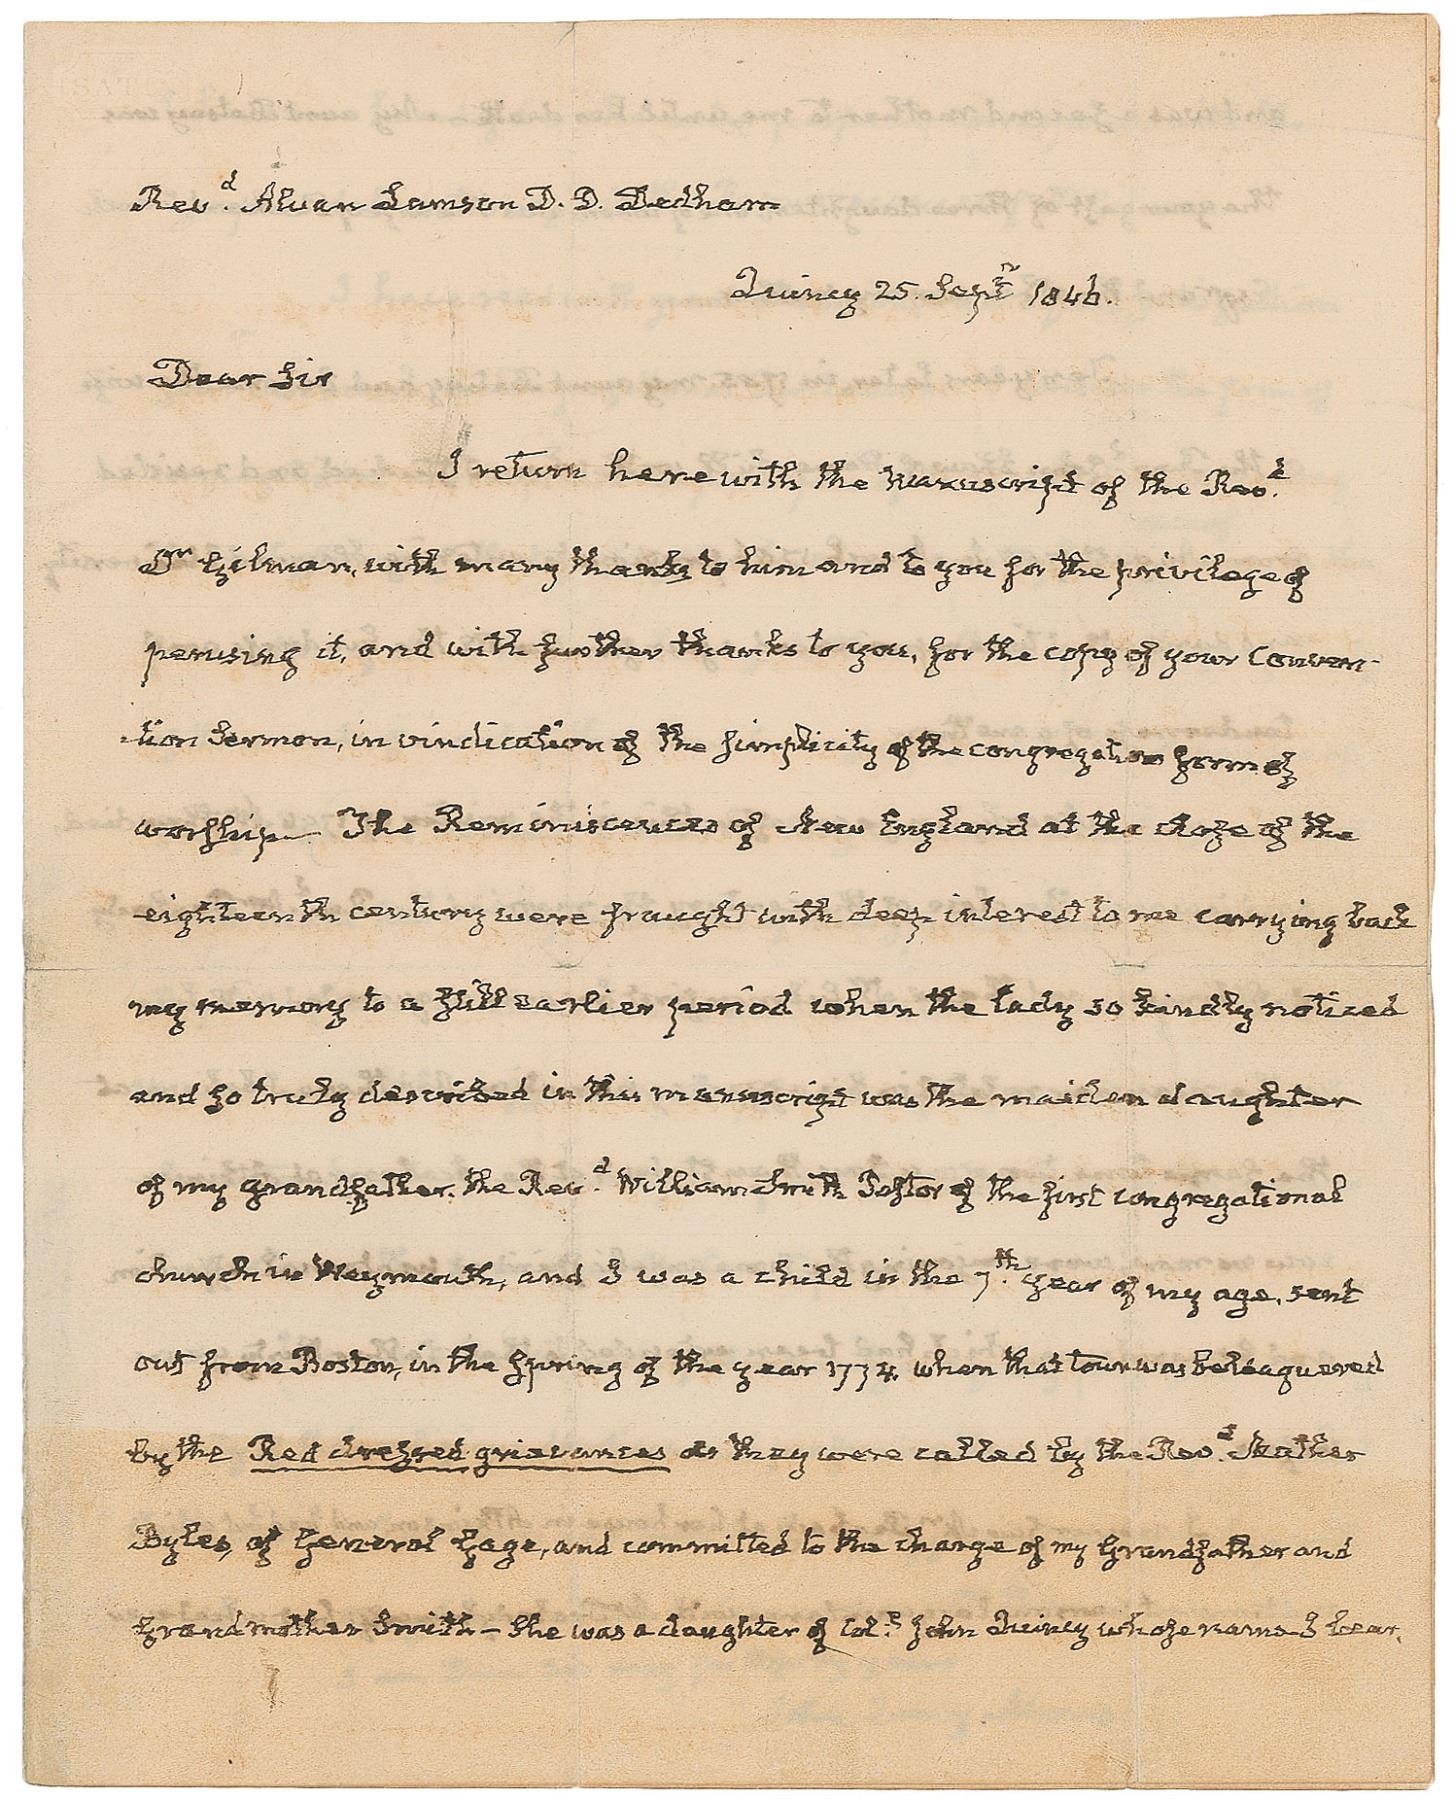 Rev.d Alvan Lamson D. D. Dedham
Quincy 25. Septr 1846.
Dear Sir
I return herewith the Manuscript of the Rev.d
Dr Gilman, with many thanks to him and to you for the privilege of
perusing it, and with further thanks to you, for the copy of your Conven-
tion Sermon, in vindication of the simplicity of the congregation form of
worship— The Reminiscences of New England at the close of the
eighteenth century were fraught with deep interest to me carrying back
my memory to a still earlier period when the lady so kindly noticed
and so truly described in this manuscript was the maiden daughter
of my grandfather, the Rev.d William Smith Pastor of the first congregational
church in Weymouth, and I was a child in the 7.th year of my age, sent
out from Boston, in the Spring of the year 1774, when that town was beleaguered
by the Red dressed grievances as they were called by the Rev.d Mather
Byles, of General Gage, and committed to the charge of my Grandfather and
Grandmother Smith — She was a daughter of Col.l John Quincy whose name I bear,